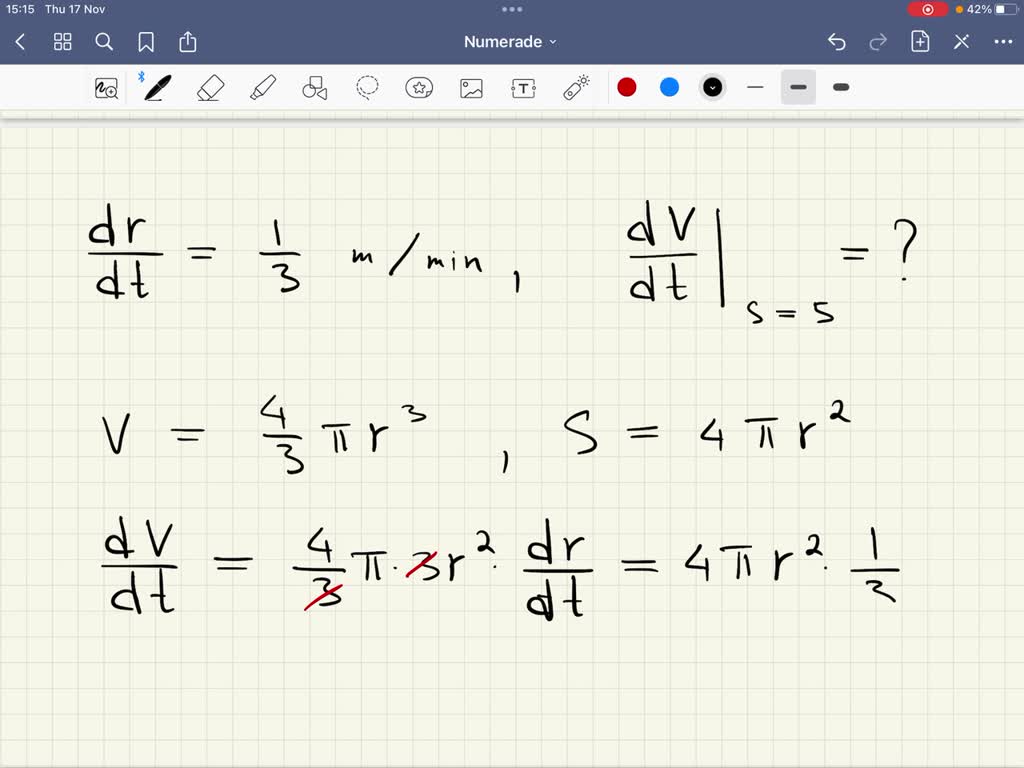 15:15 Thu 17 Nov 42%
Numerade
dr/dt = 1/3 m/min, dV/dt | s = 5 = ?
V = 4/3 π r³, S = 4 π r²
dV/dt = 4/3 π · 3r² · dr/dt = 4 π r² · 1/3